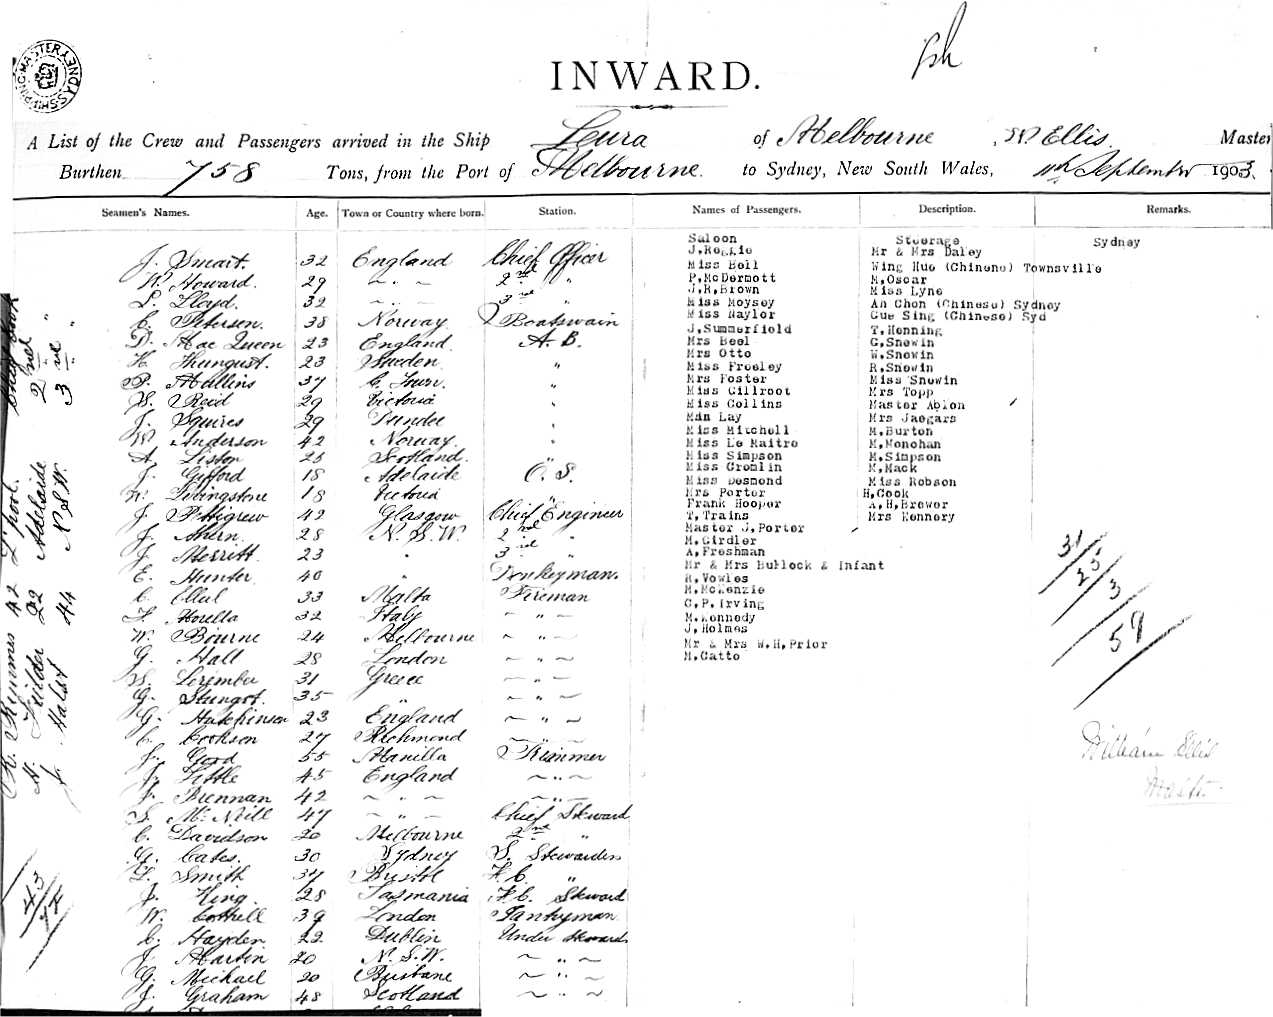 SHIPPING MASTER SYDNEY
INWARD.
A List of the Crew and Passengers arrived in the Ship Leura of Melbourne, W. Ellis. Master
Burthen 758 Tons, from the Port of Melbourne. to Sydney, New South Wales, 11th September 1903.
Seamen's Names. Age. Town or Country where born. Station. Names of Passengers. Description. Remarks.
J. Smart. 32 England Chief Officer
W. Howard. 29 " 2nd "
L. Lloyd. 32 " 3rd "
C. Petersen. 38 Norway Boatswain
D. Mac Queen 23 England A.B.
H. 23 Sweden "
P. Mullins 37 C. Town. "
W. Reid 29 Victoria "
J. Squires 29 Dundee "
W. Anderson 42 Norway. "
A. Liston 25 Scotland. "
J. Gifford 18 Adelaide O.S.
W. Livingstone 18 Victoria "
J. Pettigrew 42 Glasgow Chief Engineer
J. Ahern. 28 N.S.W. 2nd "
J. Merritt 23 " 3rd "
E. Hunter 40 " Donkeyman.
C. Ellul 33 Malta Fireman
F. Morella 32 Italy " "
W. Bourne 24 Melbourne "
G. Hall 28 London "
W. 31 Greece "
G. 35 " "
G. Hutchinson 23 England "
C. Cookson 27 Richmond "
J. Gord 55 Manilla Trimmer
J. Little 45 England "
J. Brennan 42 " "
S. McNeill 47 " Chief Steward
C. Davidson 20 Melbourne 2nd "
G. Cates. 30 Sydney S. Stewardess
L. Smith 37 Bristol F.C. "
J. King. 28 Tasmania F.C. Steward
W. Cottrell 39 London Pantryman
C. Hayden 22 Dublin Under Steward
J. Martin 20 N.S.W. "
G. Michael 20 Brisbane "
J. Graham 48 Scotland "
Saloon
J.Reggie
Miss Bell
P.McDermott
J.R.Brown
Miss Moysey
Miss Naylor
J.Summerfield
Mrs Beel
Mrs Otto
Miss Freeley
Mrs Foster
Miss Gillroot
Miss Collins
Man Lay
Miss Mitchell
Miss Le Maitre
Miss Simpson
Miss Cromlin
Miss Desmond
Mrs Porter
Frank Hooper
T.Trains
Master J.Porter
M.Girdler
A.Freshman
Mr & Mrs Bullock & Infant
R.Vowles
M.McKenzie
C.P.Irving
M.Kennedy
J.Holmes
Mr & Mrs W.H.Prior
M.Catto
Steerage Sydney
Mr & Mrs Daley
Wing Hue (Chinene) Townsville
M.Oscar
Miss Lyne
An Chon (Chinese) Sydney
Gue Sing (Chinese) Syd
T.Henning
G.Snowin
W.Snowin
R.Snowin
Miss Snowin
Mrs Topp
Master Abion
Mrs Jaegars
M.Burton
M.Monohan
M.Simpson
M.Mack
Miss Robson
H.Cook
A.H.Brewer
Mrs Kennery
31
25
3
59
William Ellis
Master
R. Kimmis 42 L'pool.
H. Fielder 22 Adelaide 2nd "
J. Halsy 44 N.S.W. 3rd "
43